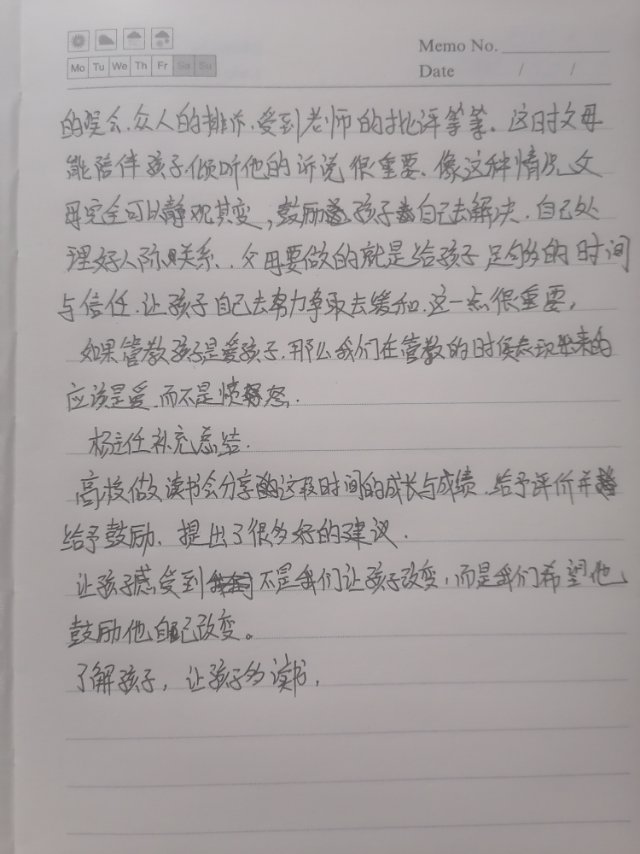 Memo No.
Mo Tu We Th Fr Sa Su
Date / /
的误会,众人的排斥,受到老师的批评等等。这时父母
能陪伴孩子,倾听他的诉说很重要、像这种情况,父
母完全可以静观其变,鼓励孩子自己去解决,自己处
理好人际关系..父母要做的就是给孩子足够多的时间
与信任,让孩子自己去努力争取去缓和,这一点很重要,
如果管教孩子是爱孩子,那么我们在管教的时候表现出来的
应该是爱,而不是愤怒.
杨主任补充总结.
高校做读书会分享的这段时间的成长与成绩,给予评价并
给予鼓励,提出了很多好的建议.
让孩子感受到不是我们让孩子改变,而是我们希望他
鼓励他自己改变。
了解孩子,让孩子多读书,